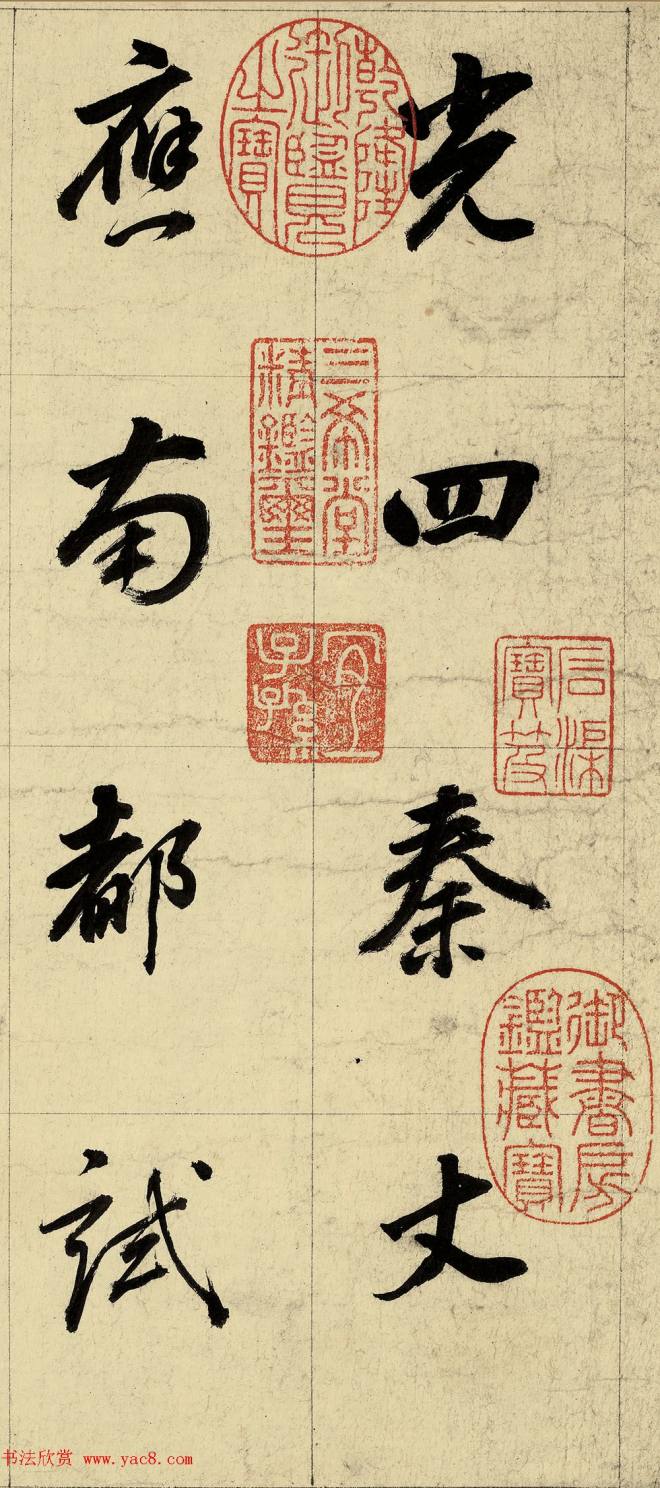 光四秦丈
應南都試
乾隆御覽之寶
三希堂精鑑璽
宜子孫
石渠寶笈
御書房鑑藏寶
书法欣赏 www.yac8.com